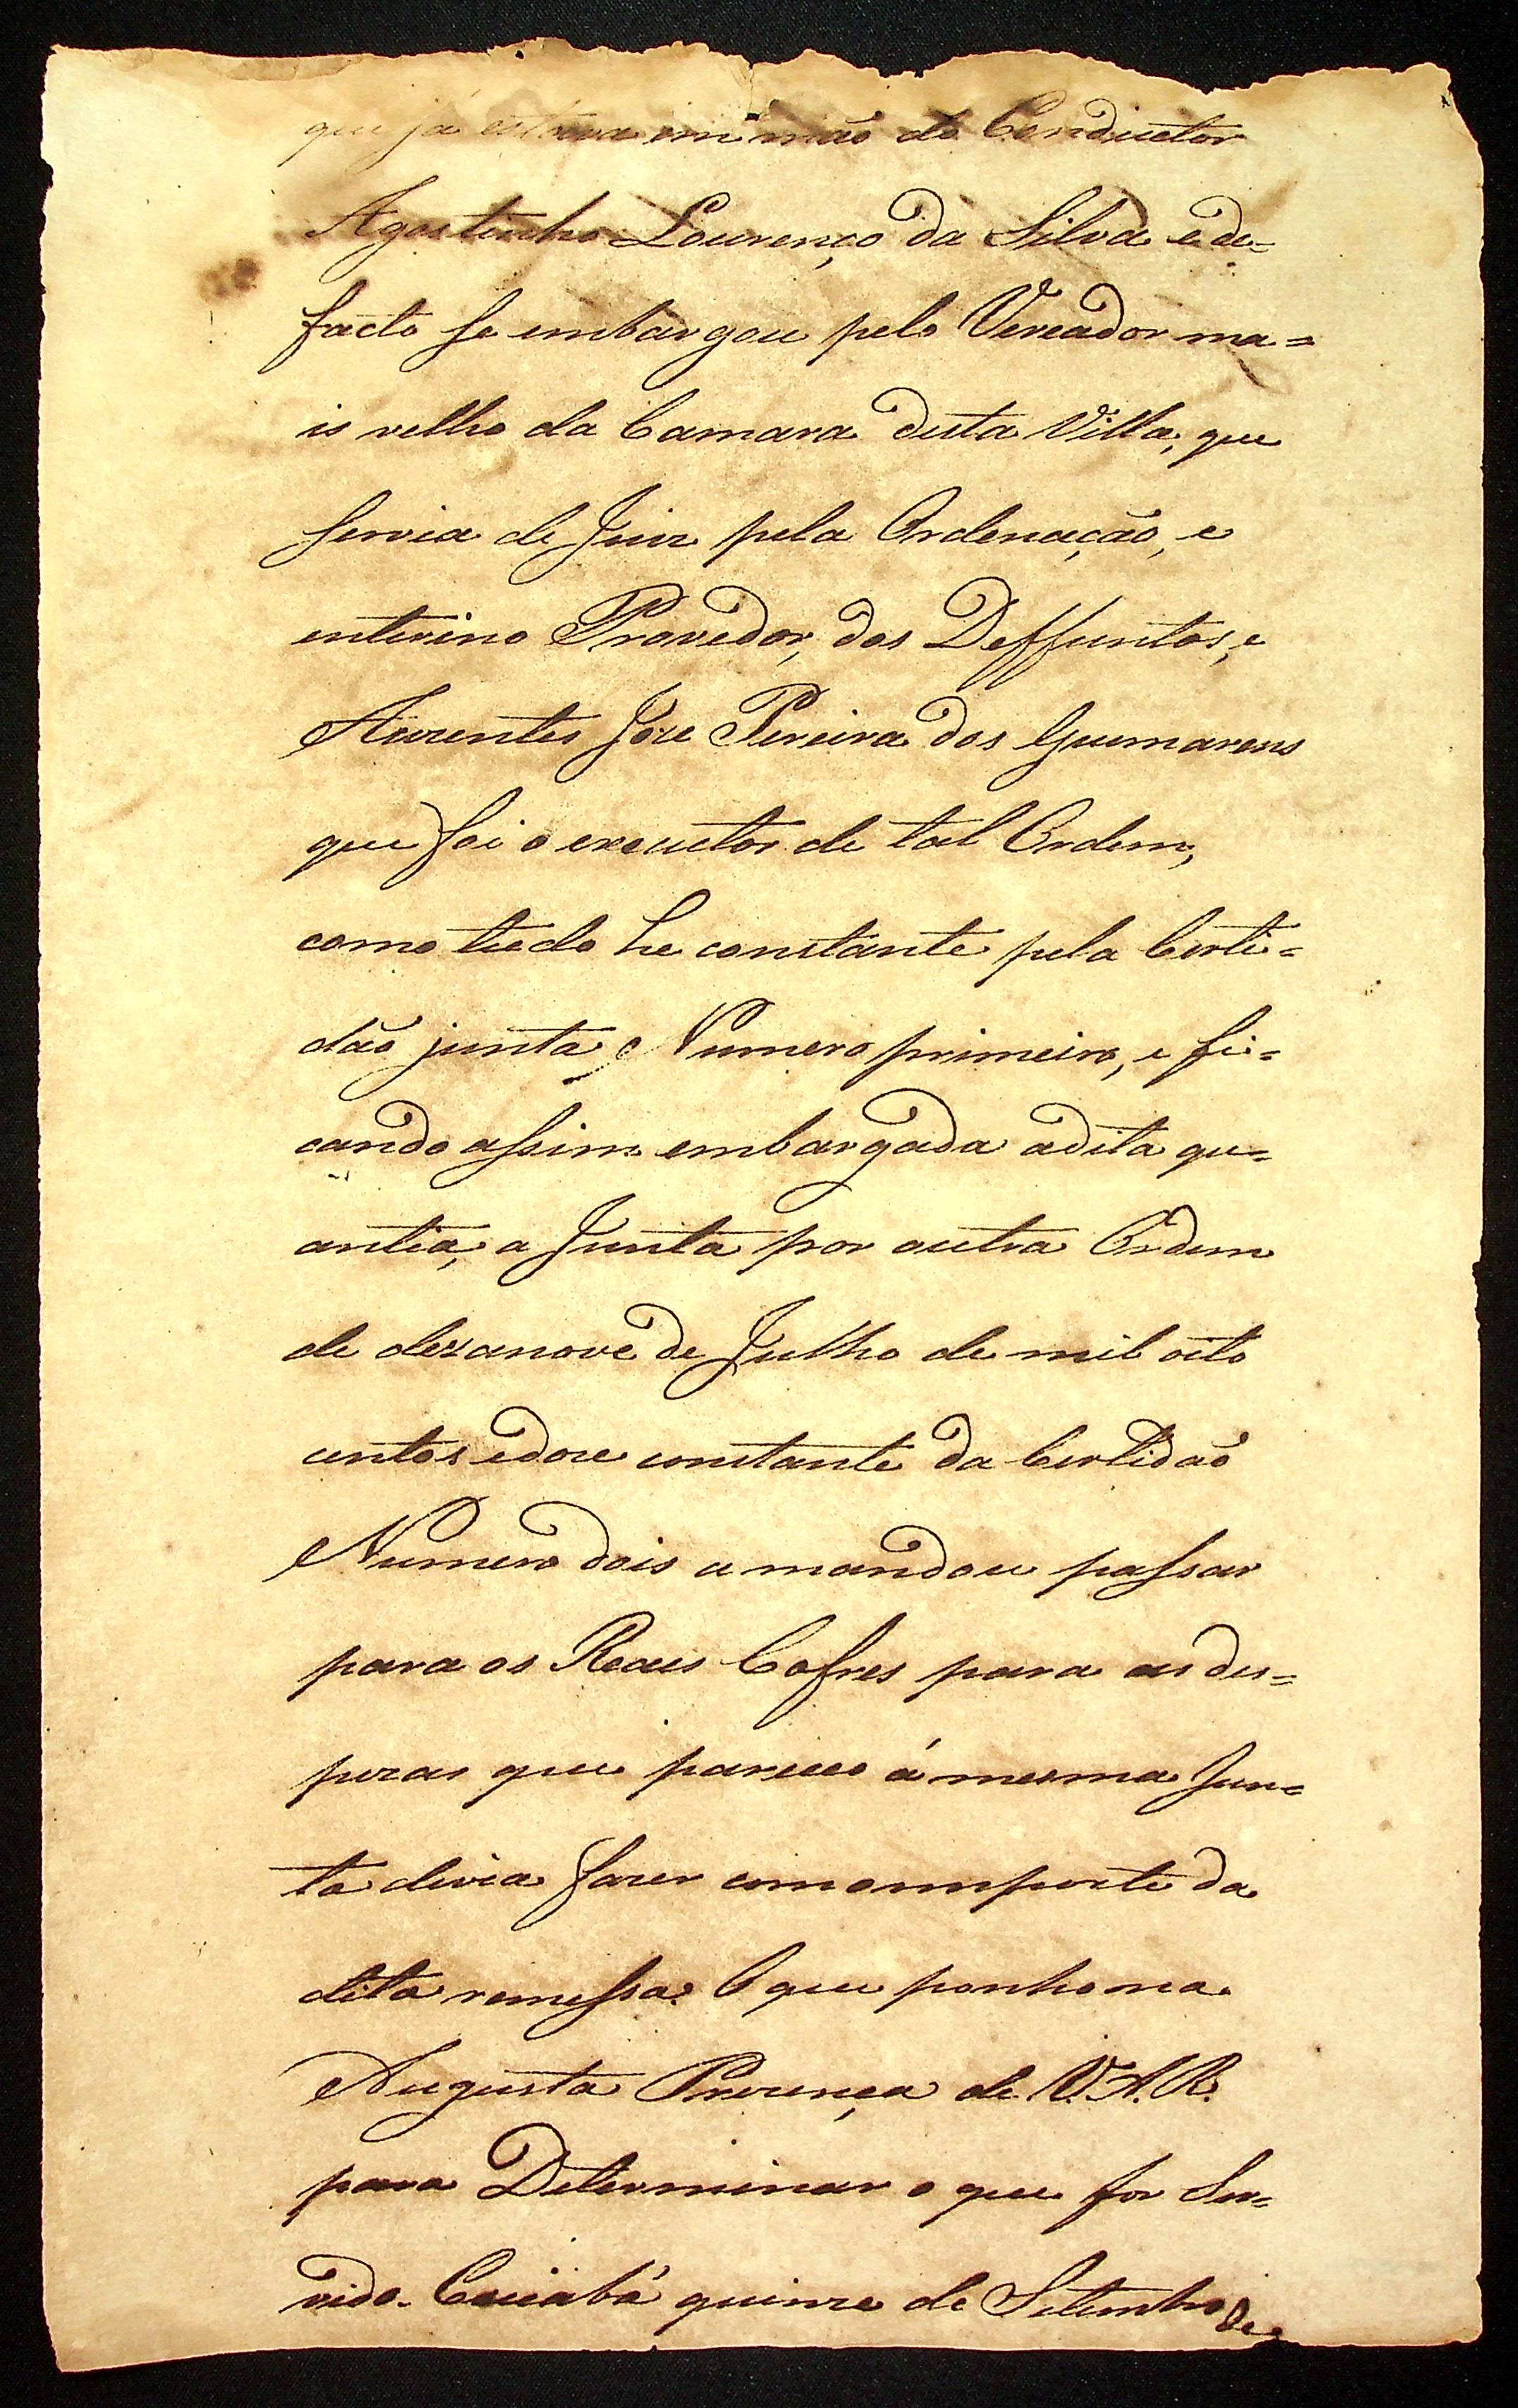 que já estava em mão do Conductor
Agostinho Lourenço da Silva e de=
facto se embargou pelo Vereador ma=
is velho da Camara desta Villa, que
servia de Juiz pela Ordenação, e
enterino Provedor, dos Deffuntos, e
Auzentes Joze Pereira dos Guimaraens
que foi o executor de tal Ordem,
como tudo he constante pela Certi=
dão junta Numero primeiro, e fi=
cando assim embargada adita qu=
antia, a Junta por outra Ordem
de dezanove de Julho de mil oito
centos edoze constante da Certidão
Numero dois a mandou passar
para os Reaes Cofres para as des=
pezas que pareceo á mesma Jun=
ta devia fazer comoimporte da
dita remessa. O que ponho na
Augusta Prezença de V. A. R.
para Determinar o que for Ser=
vido. Cuiabá quinze de Setembro de